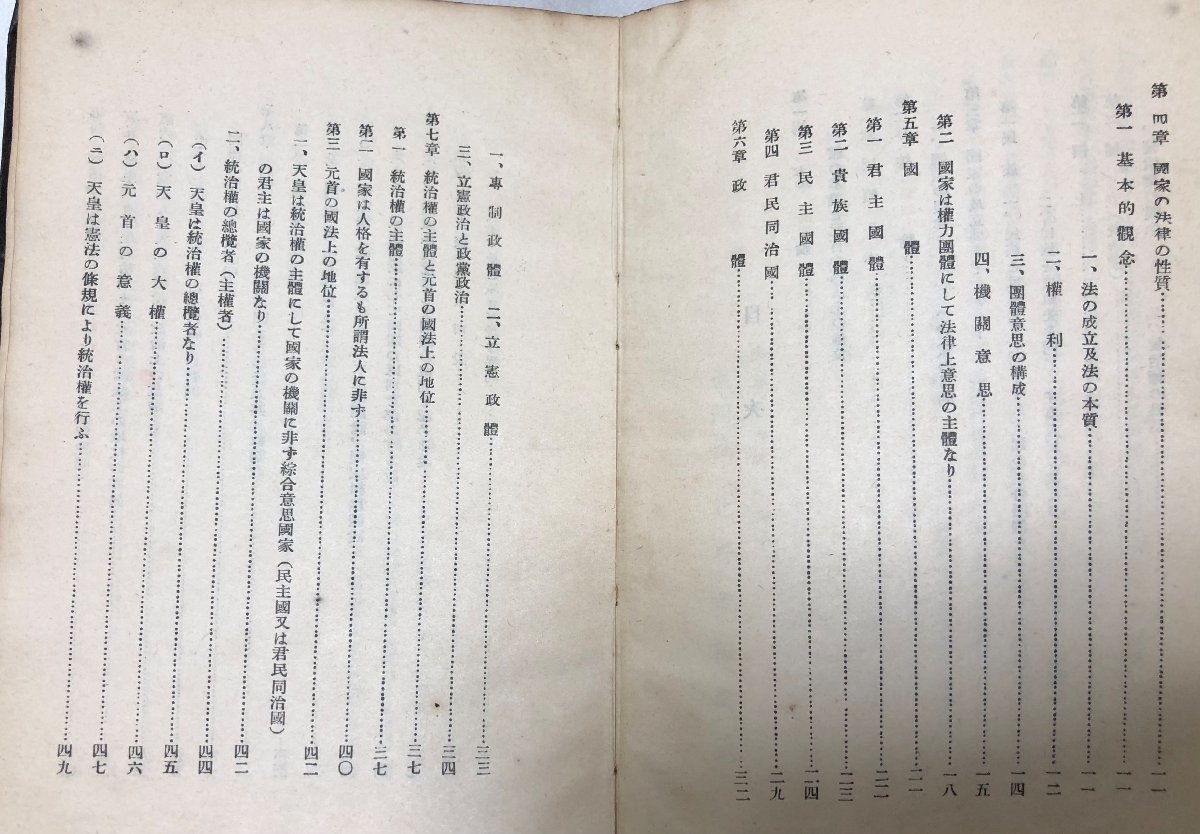 第四章 國家の法律の性質……一一
第一 基本的觀念……一一
一、法の成立及法の本質……一一
二、權利……一二
三、團體意思の構成……一四
四、機關意思……一五
第二 國家は權力團體にして法律上意思の主體なり……一八
第五章 國體……二一
第一 君主國體……二二
第二 貴族國體……二三
第三 民主國體……二四
第四 君民同治國……二九
第六章 政體……三二
一、專制政體 二、立憲政體……三三
三、立憲政治と政黨政治……三四
第七章 統治權の主體と元首の國法上の地位……三七
第一 統治權の主體……三七
第二 國家は人格を有するも所謂法人に非ず……四〇
第三 元首の國法上の地位……四二
一、天皇は統治權の主體にして國家の機關に非ず綜合意思國家(民主國又は君民同治國)
の君主は國家の機關なり……四二
二、統治權の總攬者(主權者)……四四
(イ) 天皇は統治權の總攬者なり……四五
(ロ) 天皇の大權……四六
(ハ) 元首の意義……四七
(ニ) 天皇は憲法の條規により統治權を行ふ……四九